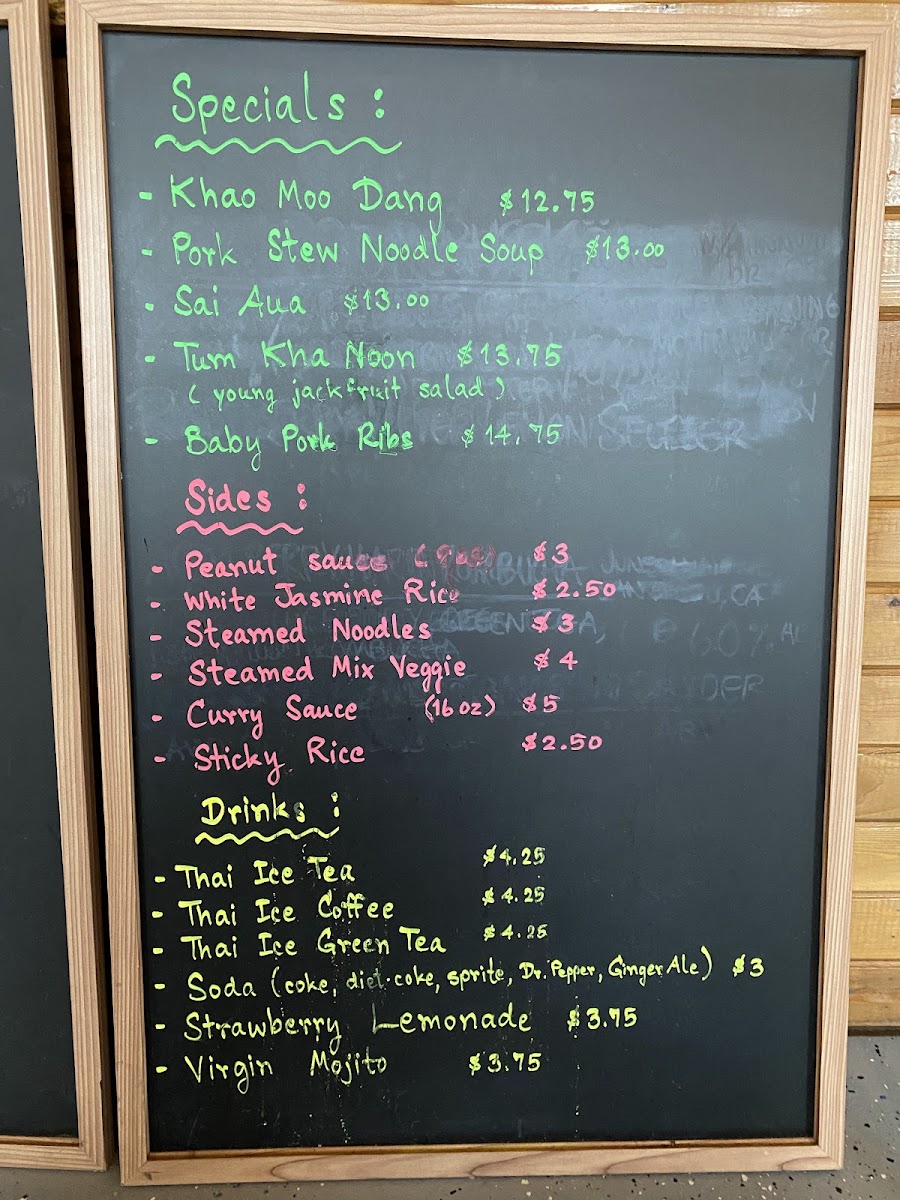 Specials :
- Khao Moo Dang $12.75
- Pork Stew Noodle Soup $13.00
- Sai Aua $13.00
- Tum Kha Noon $13.75
( young jackfruit salad )
- Baby Pork Ribs $14.75
Sides :
- Peanut sauce $3
- White Jasmine Rice $2.50
- Steamed Noodles $3
- Steamed Mix Veggie $4
- Curry Sauce (16 oz) $5
- Sticky Rice $2.50
Drinks :
- Thai Ice Tea $4.25
- Thai Ice Coffee $4.25
- Thai Ice Green Tea $4.25
- Soda (coke, diet.coke, sprite, Dr. Pepper, Ginger Ale) $3
- Strawberry Lemonade $3.75
- Virgin Mojito $3.75